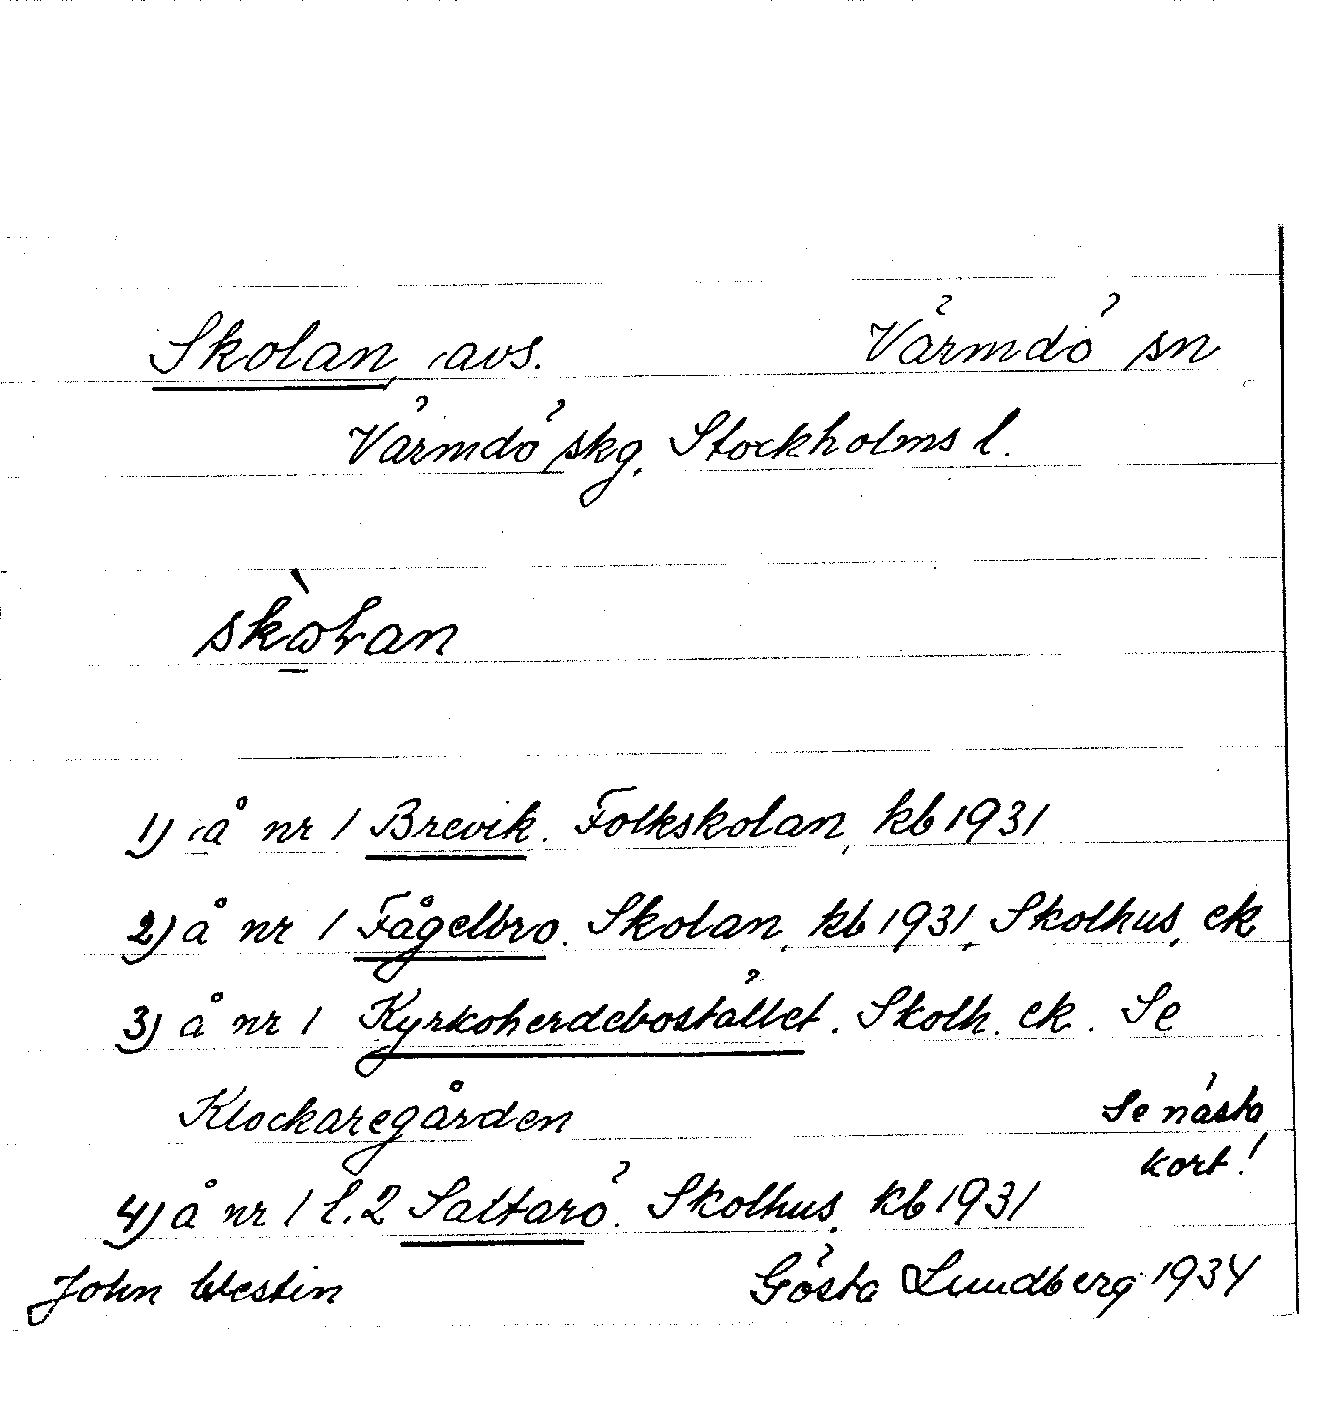 Skolan, avs. Värmdö sn
Värmdö skg, Stockholms l.
1) å nr 1 Brevik. Folkskolan, kb 1931
2) å nr 1 Fågelbro. Skolan, kb 1931, Skolhus, ek
3) å nr 1 Kyrkoherdebostället. Skolh. ek. Se
Klockaregården
Se nästa kort!
4) å nr 1 l. 2 Saltarö. Skolhus, kb 1931
John Westin Gösta Lundberg 1934